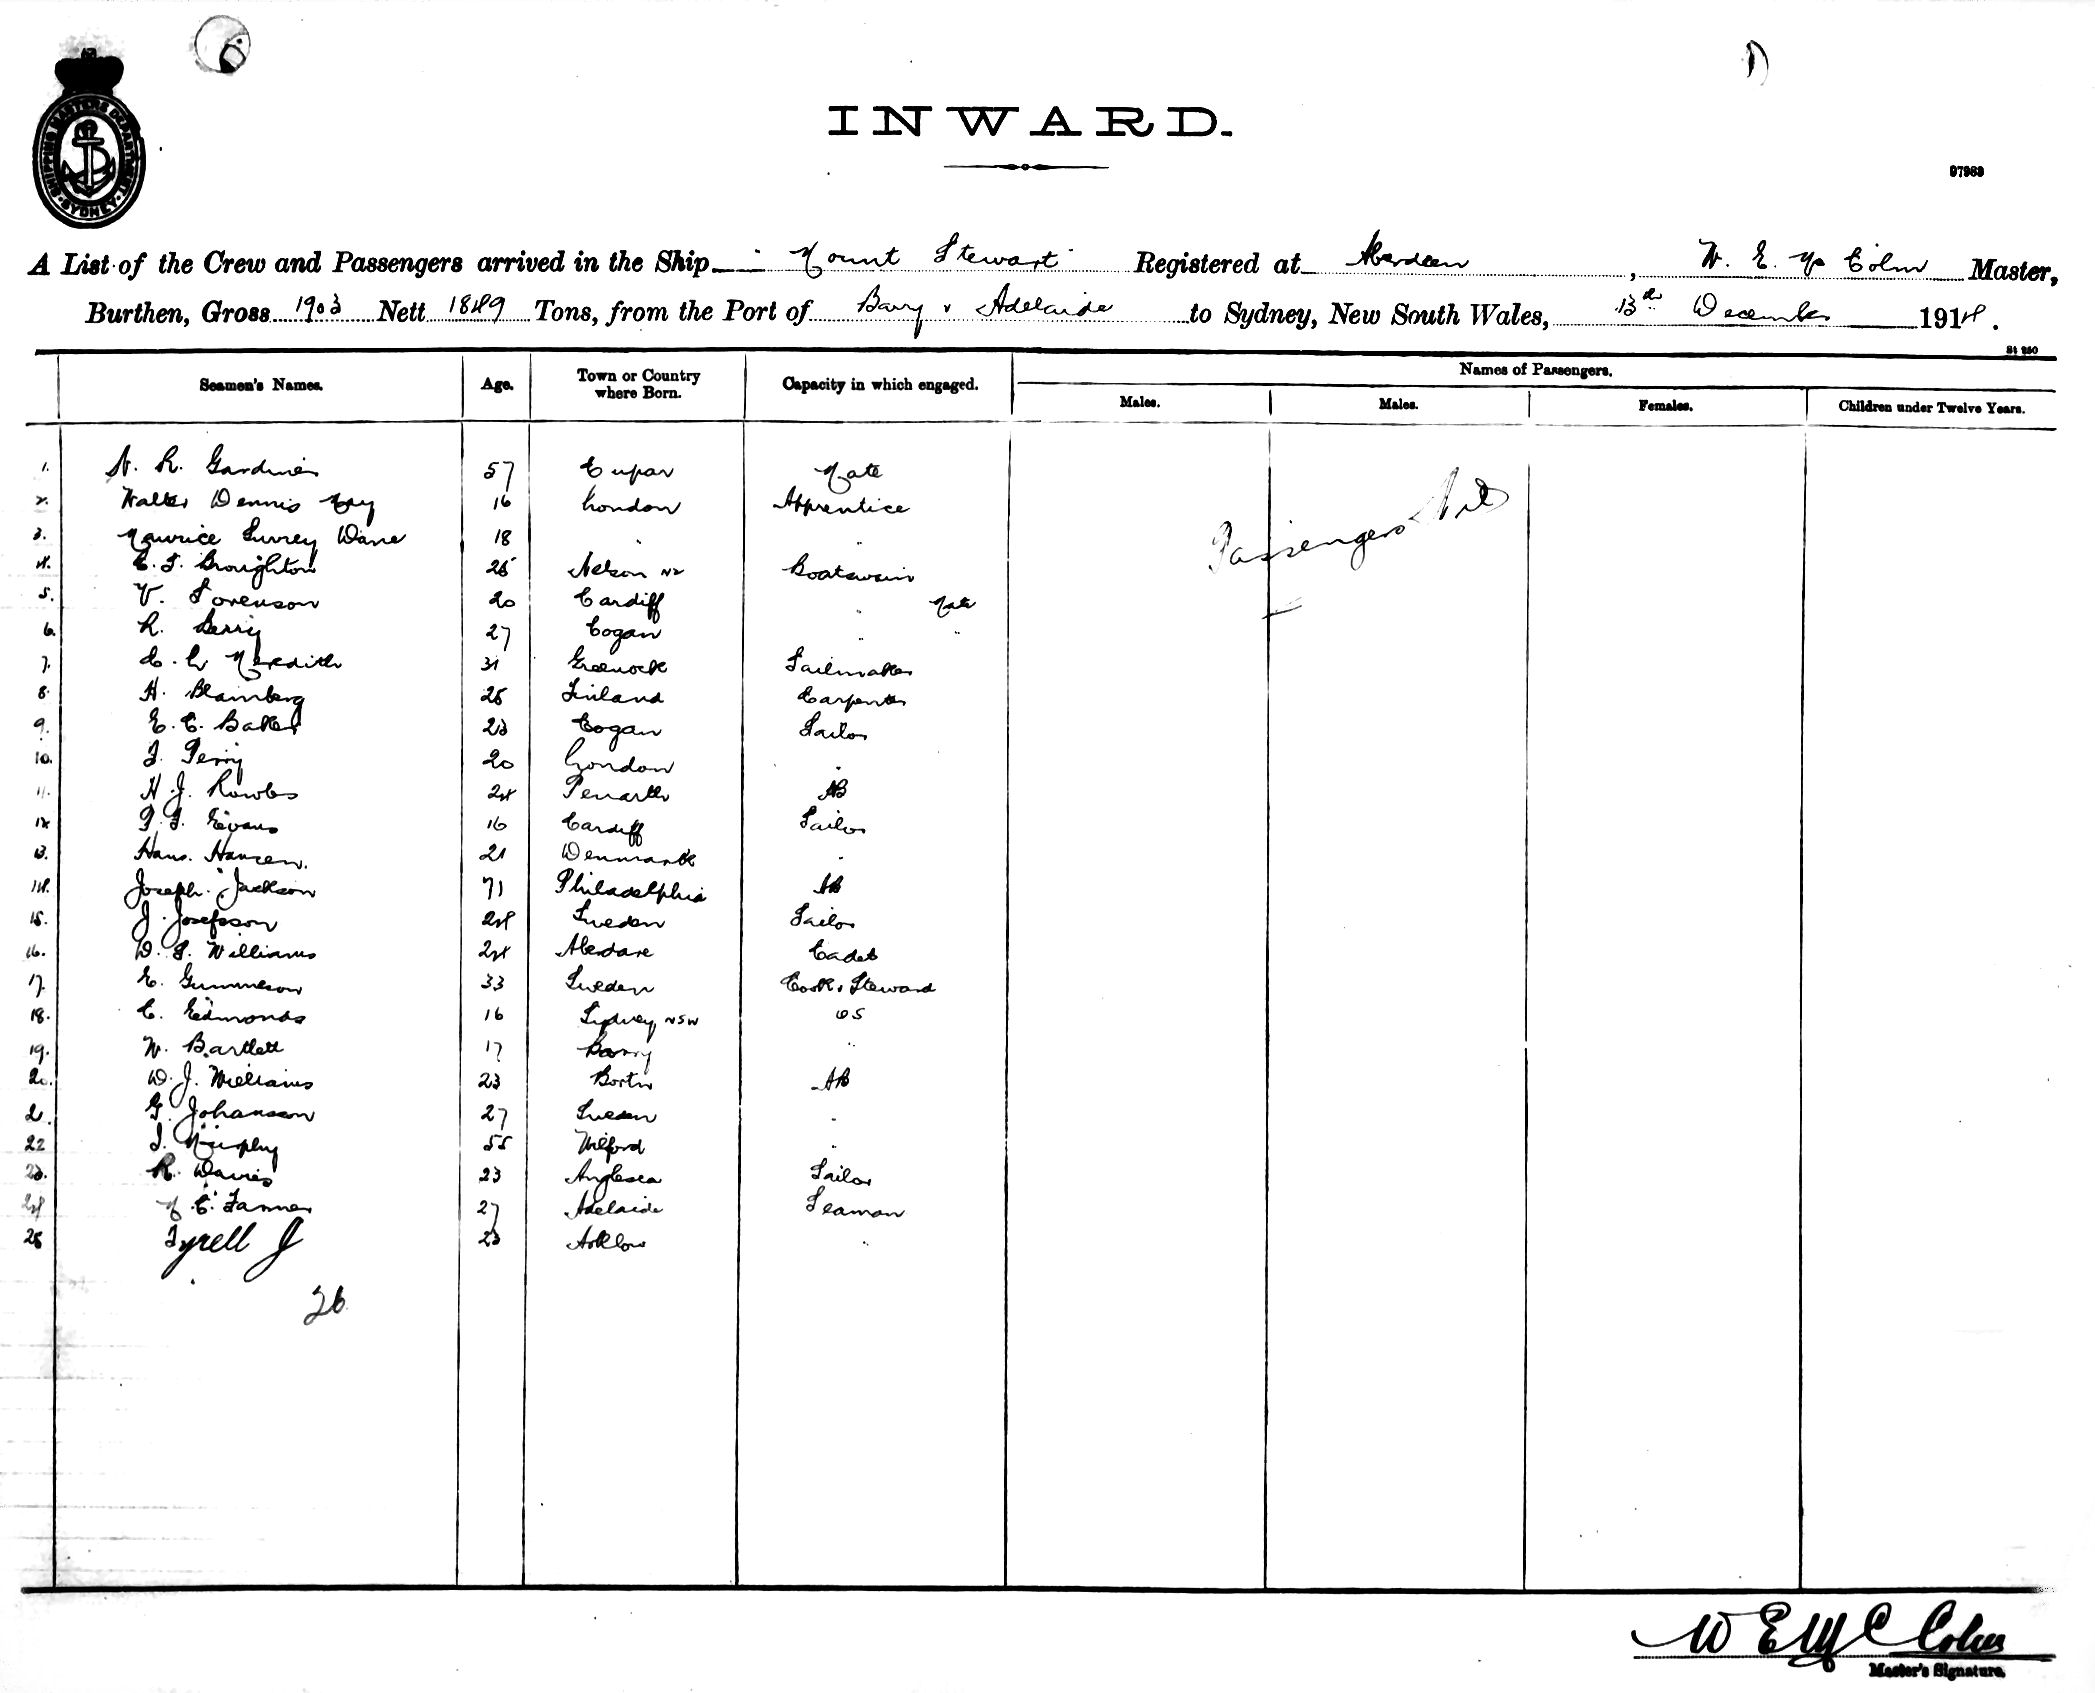 SHIPPING MASTERS DEPARTMENT SYDNEY
INWARD.
97989
A List of the Crew and Passengers arrived in the Ship Mount Stewart Registered at Aberdeen, W. E. Mc Colm Master,
Burthen, Gross 1903 Nett 1849 Tons, from the Port of Barry & Adelaide to Sydney, New South Wales, 13th December 1914.
Seamen's Names. Age. Town or Country where Born. Capacity in which engaged. Names of Passengers.
Males. Males. Females. Children under Twelve Years.
1. R. Gardiner 57 Cupar Mate
2. Walter Dennis May 16 London Apprentice
3. Maurice Surrey Dane 18 " "
4. C. F. Broughton 25 Nelson NZ Boatswain
5. V. Sorenson 20 Cardiff " Mate
6. R. Berry 27 Cogan " "
7. Meredith 31 Greenock Sailmaker
8. H. Blamberg 25 Finland Carpenter
9. E. C. Baker 23 Cogan Sailor
10. F. Perry 20 London "
11. H. J. Rowles 24 Penarth AB
12 P. F. Evans 16 Cardiff Sailor
13. Hans. Hansen. 21 Denmark "
14. Joseph Jackson 71 Philadelphia AB
15. J. Josefsson 24 Sweden Sailor
16. D. S. Williams 24 Aberdare Cadet
17. E. Gummeson 33 Sweden Cook & Steward
18. C. Edmonds 16 Sydney NSW OS
19. W. Bartlett 17 Barry "
20. D. J. Williams 23 Borth AB
21. G. Johansson 27 Sweden "
22 J. Murphy 55 Milford "
23. R. Davies 23 Anglesea Sailor
24 M. C. Fanner 27 Adelaide Seaman
25 Tyrell J 23 Arklow "
26
Passengers Nil
W E McColm
Master's Signature.